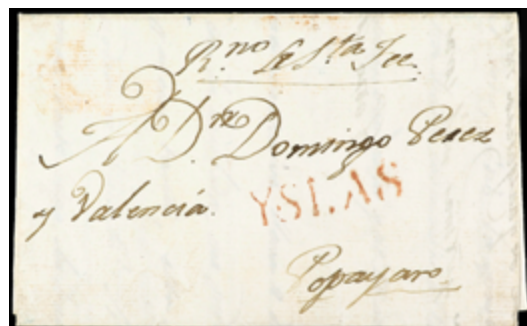 R.no de Sta Fee
A D.n Domingo Perez
y Valencia.
YSLAS
Popayan